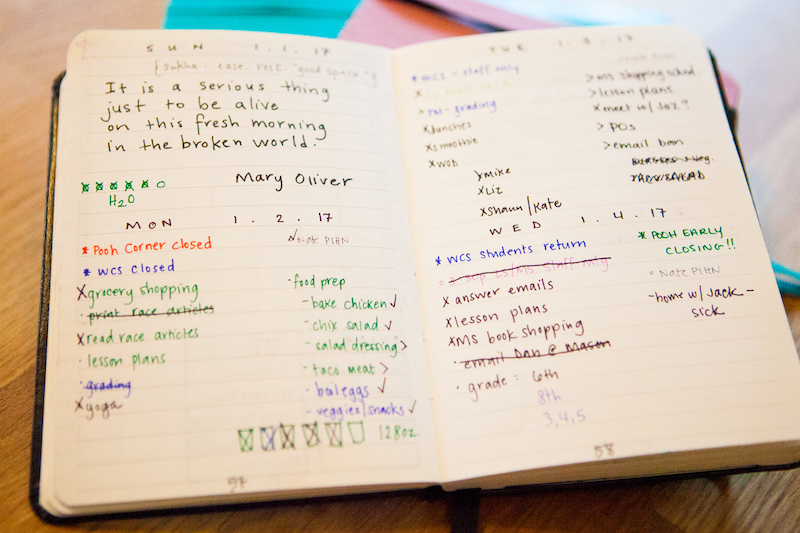 SUN 1.1.17
{sukha: ease. rest. "good space"}
It is a serious thing
just to be alive
on this fresh morning
in the broken world.
Mary Oliver
H2O
MON 1.2.17
* Pooh Corner closed
✓ Nate PIHN
* WCS closed
X grocery shopping
· print race articles
X read race articles
· lesson plans
· grading
X yoga
-food prep
- bake chicken ✓
- chix salad ✓
- salad dressing >
- taco meat >
- boil eggs ✓
- veggies/snacks ✓
128oz
57
TUE 1.3.17
* WCS - staff only
> MS-grading
X lunches
X smoothie
X WOD
X Liz
X Shaun/Kate
Nate PIHN
> MS shopping sched.
> lesson plans
X meet w/ Jaz?
> POs
> email
WED 1.4.17
* WCS students return
* POOH EARLY
CLOSING!!
staff only
X answer emails
X lesson plans
X MS book shopping
· email Dan @ Mason
· grade: 6th
8th
3,4,5
○ Nate PIHN
-home w/ Jack-
sick
58